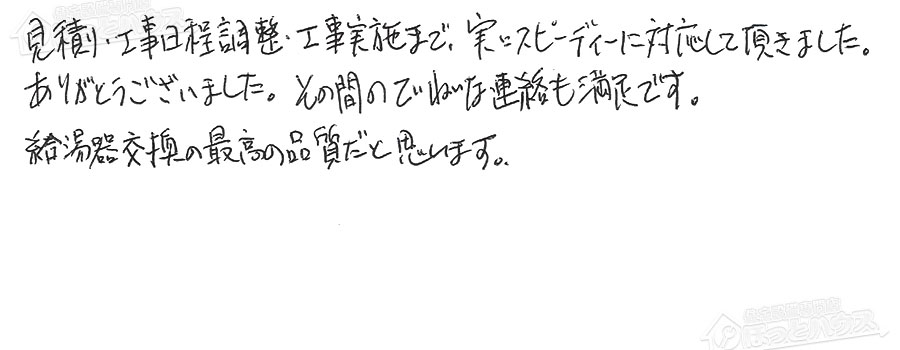 見積り・工事日程調整・工事実施まで、実にスピーディーに対応して頂きました。
ありがとうございました。その間のていねいな連絡も満足です。
給湯器交換の最高の品質だと思います。
ほっとハウス